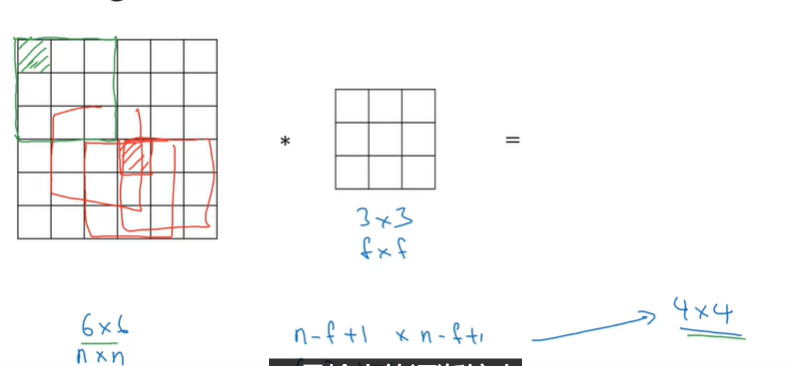 * =
3×3
f×f
6×6
n×n
n-f+1 × n-f+1
4×4